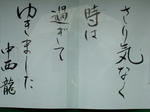 さり気なく
時は
過ぎて
ゆきました
中西龍